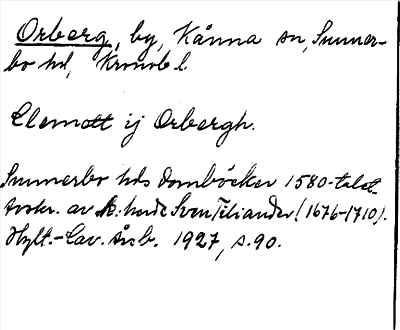 Orberg, by, Kånna sn, Sunner-
bo hd, Kronob l.
Clemett ij Orbergh.
Sunnerbo hds domböcker 1580-talet
avskr. av K. herde Sven Tiliander (1676-1710).
Hylt.-Cav. Årsb. 1927, s. 90.